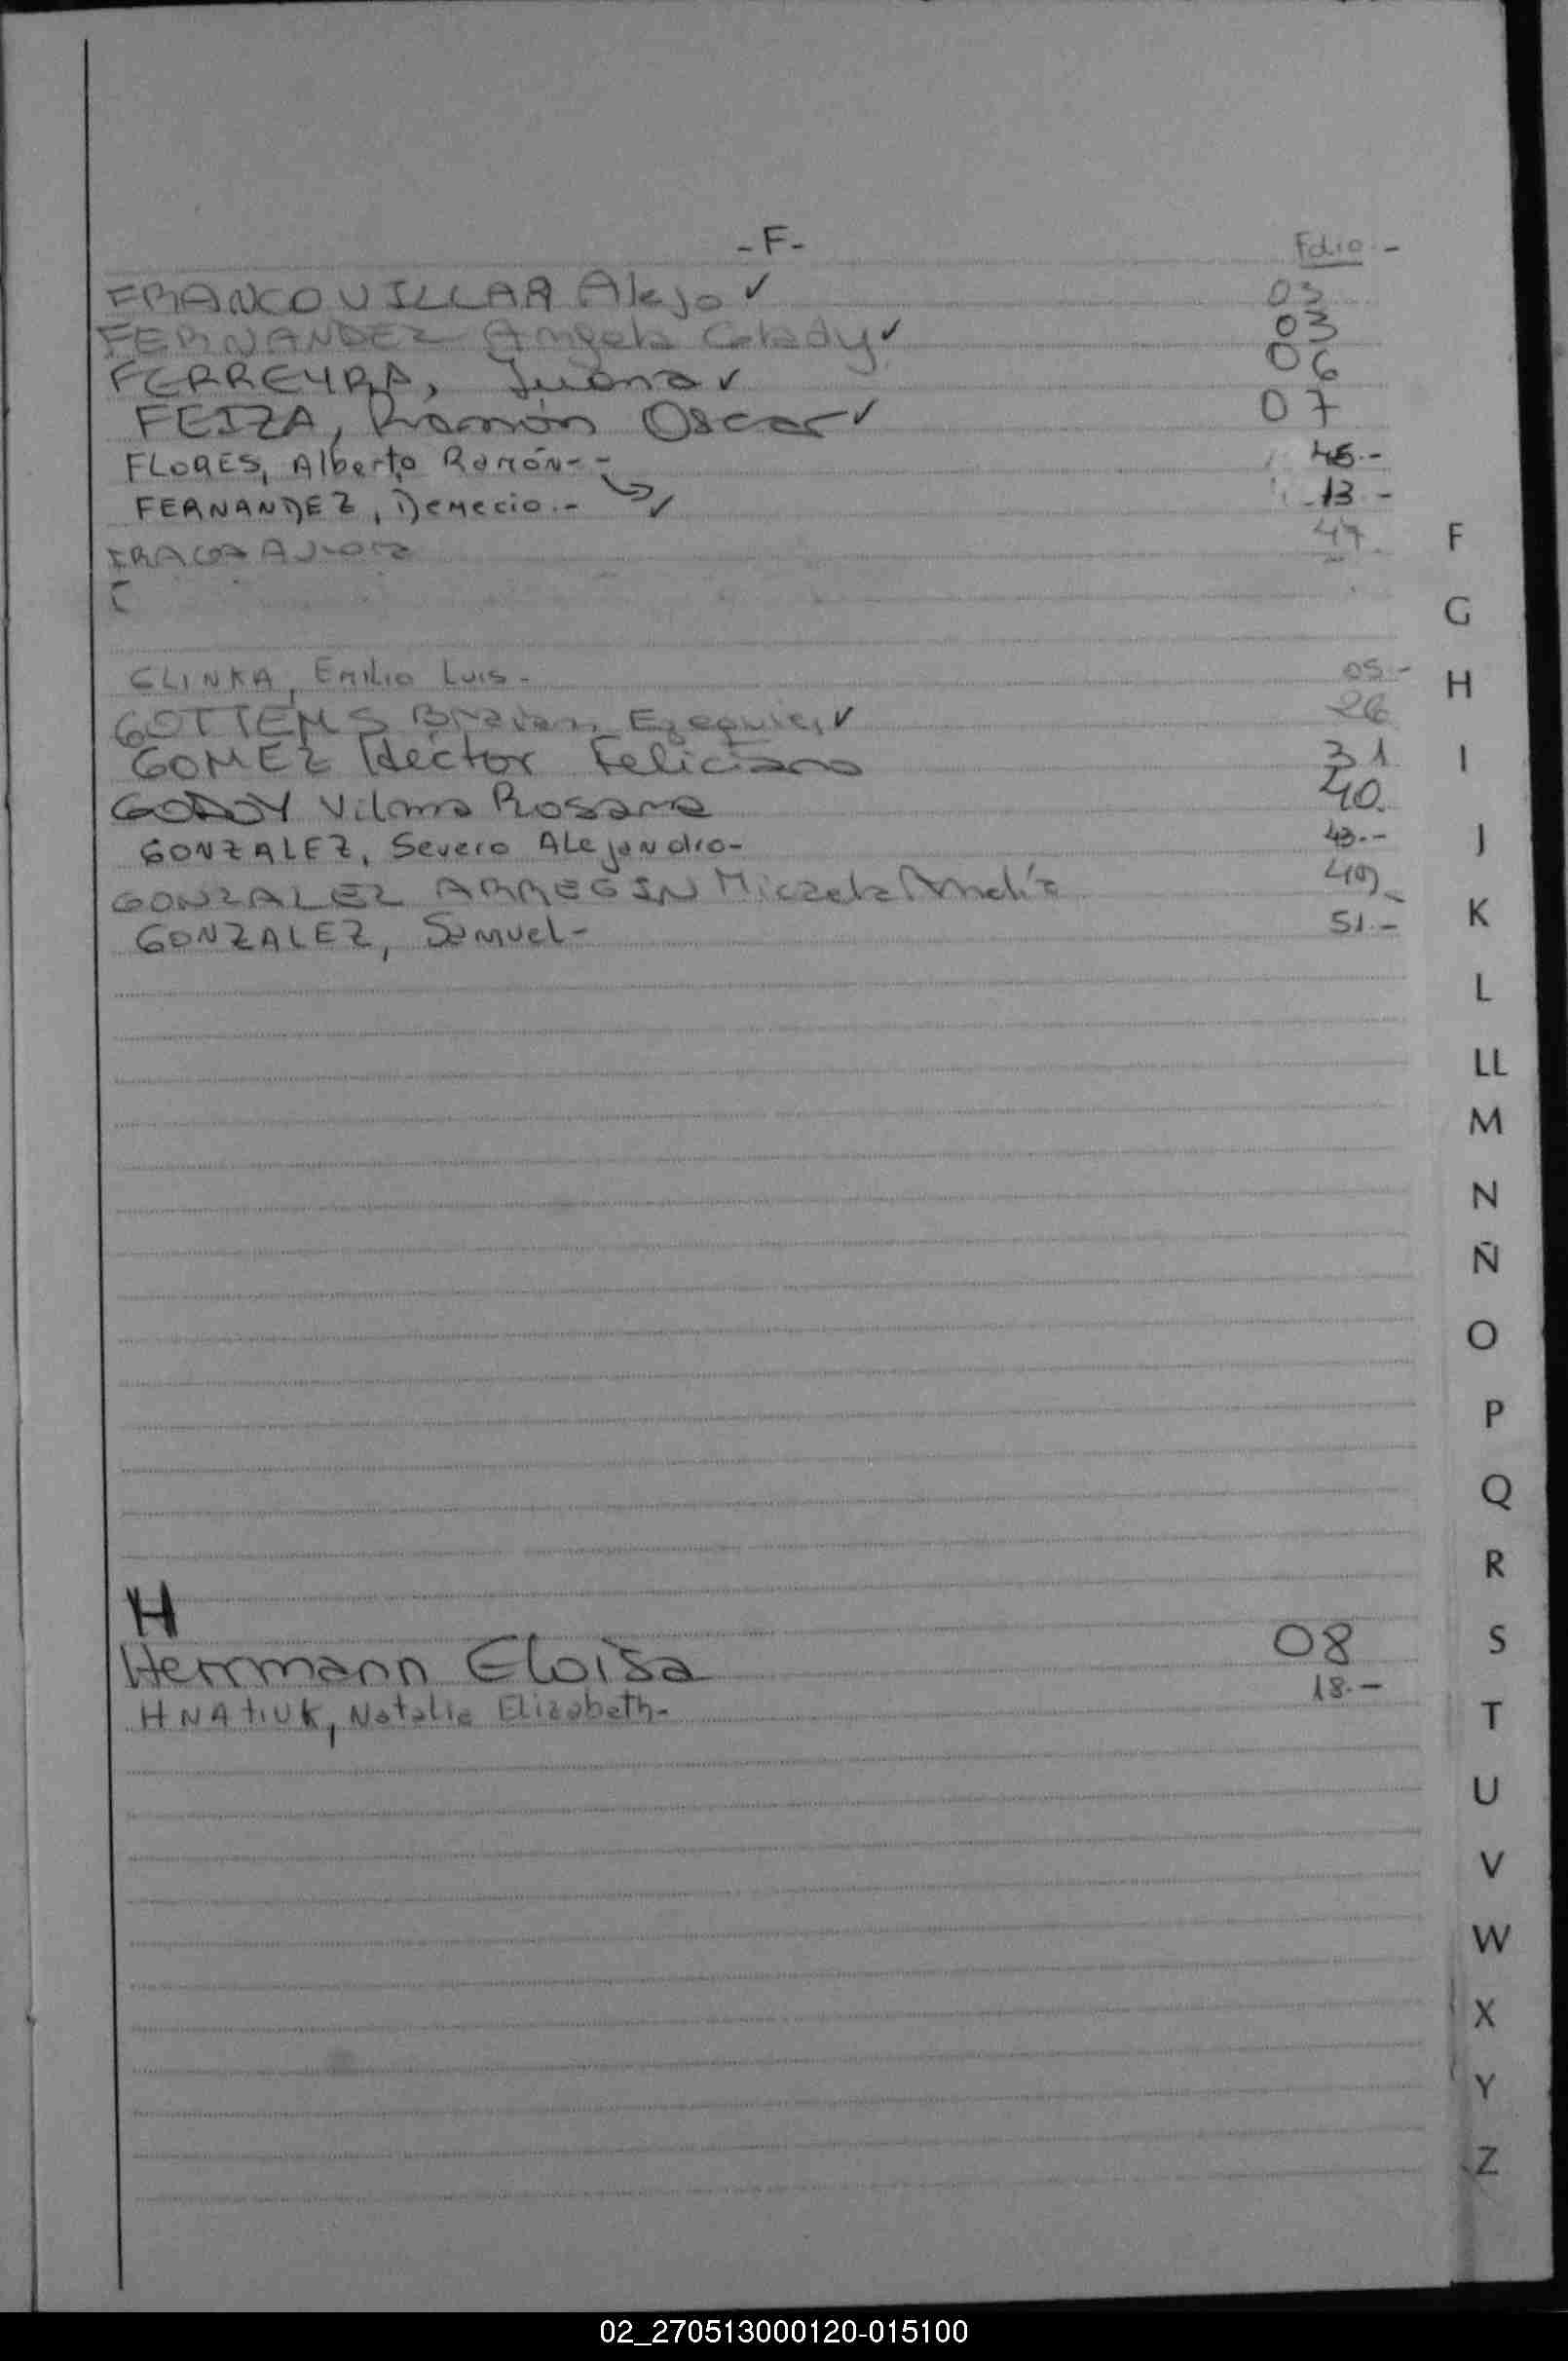 -F- Folio.-
FRANCO VILLAR Alejo ✓ 03
FERNANDEZ Angela Glady ✓ 03
FERREYRA, Juana ✓ 06
FEIZA, Ramón Oscar ✓ 07
FLORES, Alberto Ramón-- 45.-
FERNANDEZ, Demecio.- ✓ 13.-
47.
GLINKA, Emilio Luis.- 05.-
GOTTEMS Braian Ezequiel ✓ 26
GOMEZ Héctor Feliciano 31
GODOY Vilma Rosana 40.
GONZALEZ, Severo Alejandro- 43.-
GONZALEZ Micaela 49
GONZALEZ, Samuel- 51.-
H
Herrmann Eloisa 08
HNAtiUK, Natalia Elizabeth- 18.-
F
G
H
I
J
K
L
LL
M
N
Ñ
O
P
Q
R
S
T
U
V
W
X
Y
Z
02_270513000120-015100